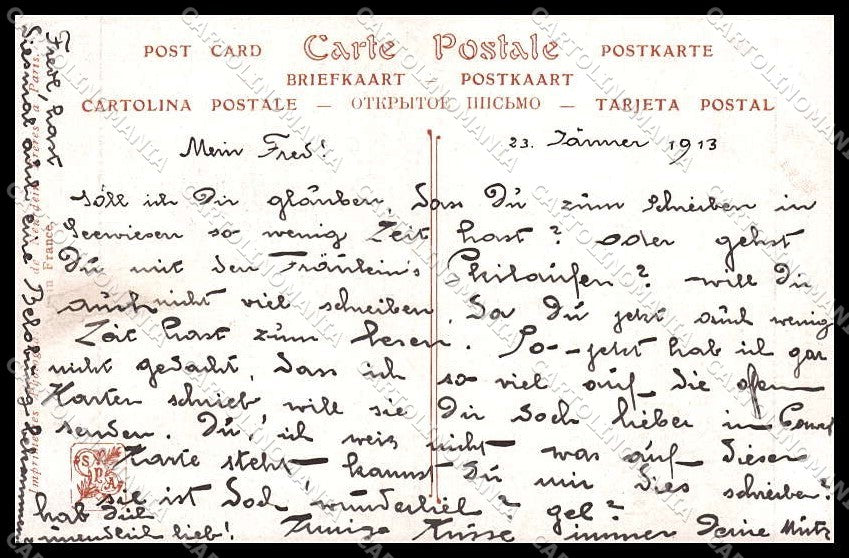 POST CARD Carte Postale POSTKARTE
BRIEFKAART POSTKAART
CARTOLINA POSTALE — ОТКРЫТОЕ ПИСЬМО — TARJETA POSTAL
Mein Fred! 23. Jänner 1913
Soll ich Dir glauben, dass Du zum Schreiben in
Seewiesen so wenig Zeit hast? oder gehst
Du mit den Fräulein's Skilaufen? will Dir
auch nicht viel schreiben, da Du jetzt auch wenig
Zeit hast zum lesen. So – jetzt hab ich gar
nicht gedacht, dass ich so viel auf die offene
Karten schrieb, will sie Dir doch lieber in
senden. Du, ich weiß nicht was auf dieser
Karte steht – kannst Du mir dies schreiben?
sie ist doch wunderlich? gel?
hab Dich
unendlich lieb! Küsse immer Deine
Fredl, hast
Diesmal auch eine Belohnung bekommen
Imprimeries de Neurdein à Paris.
in France.
SPA
CARTOLINOMANIA